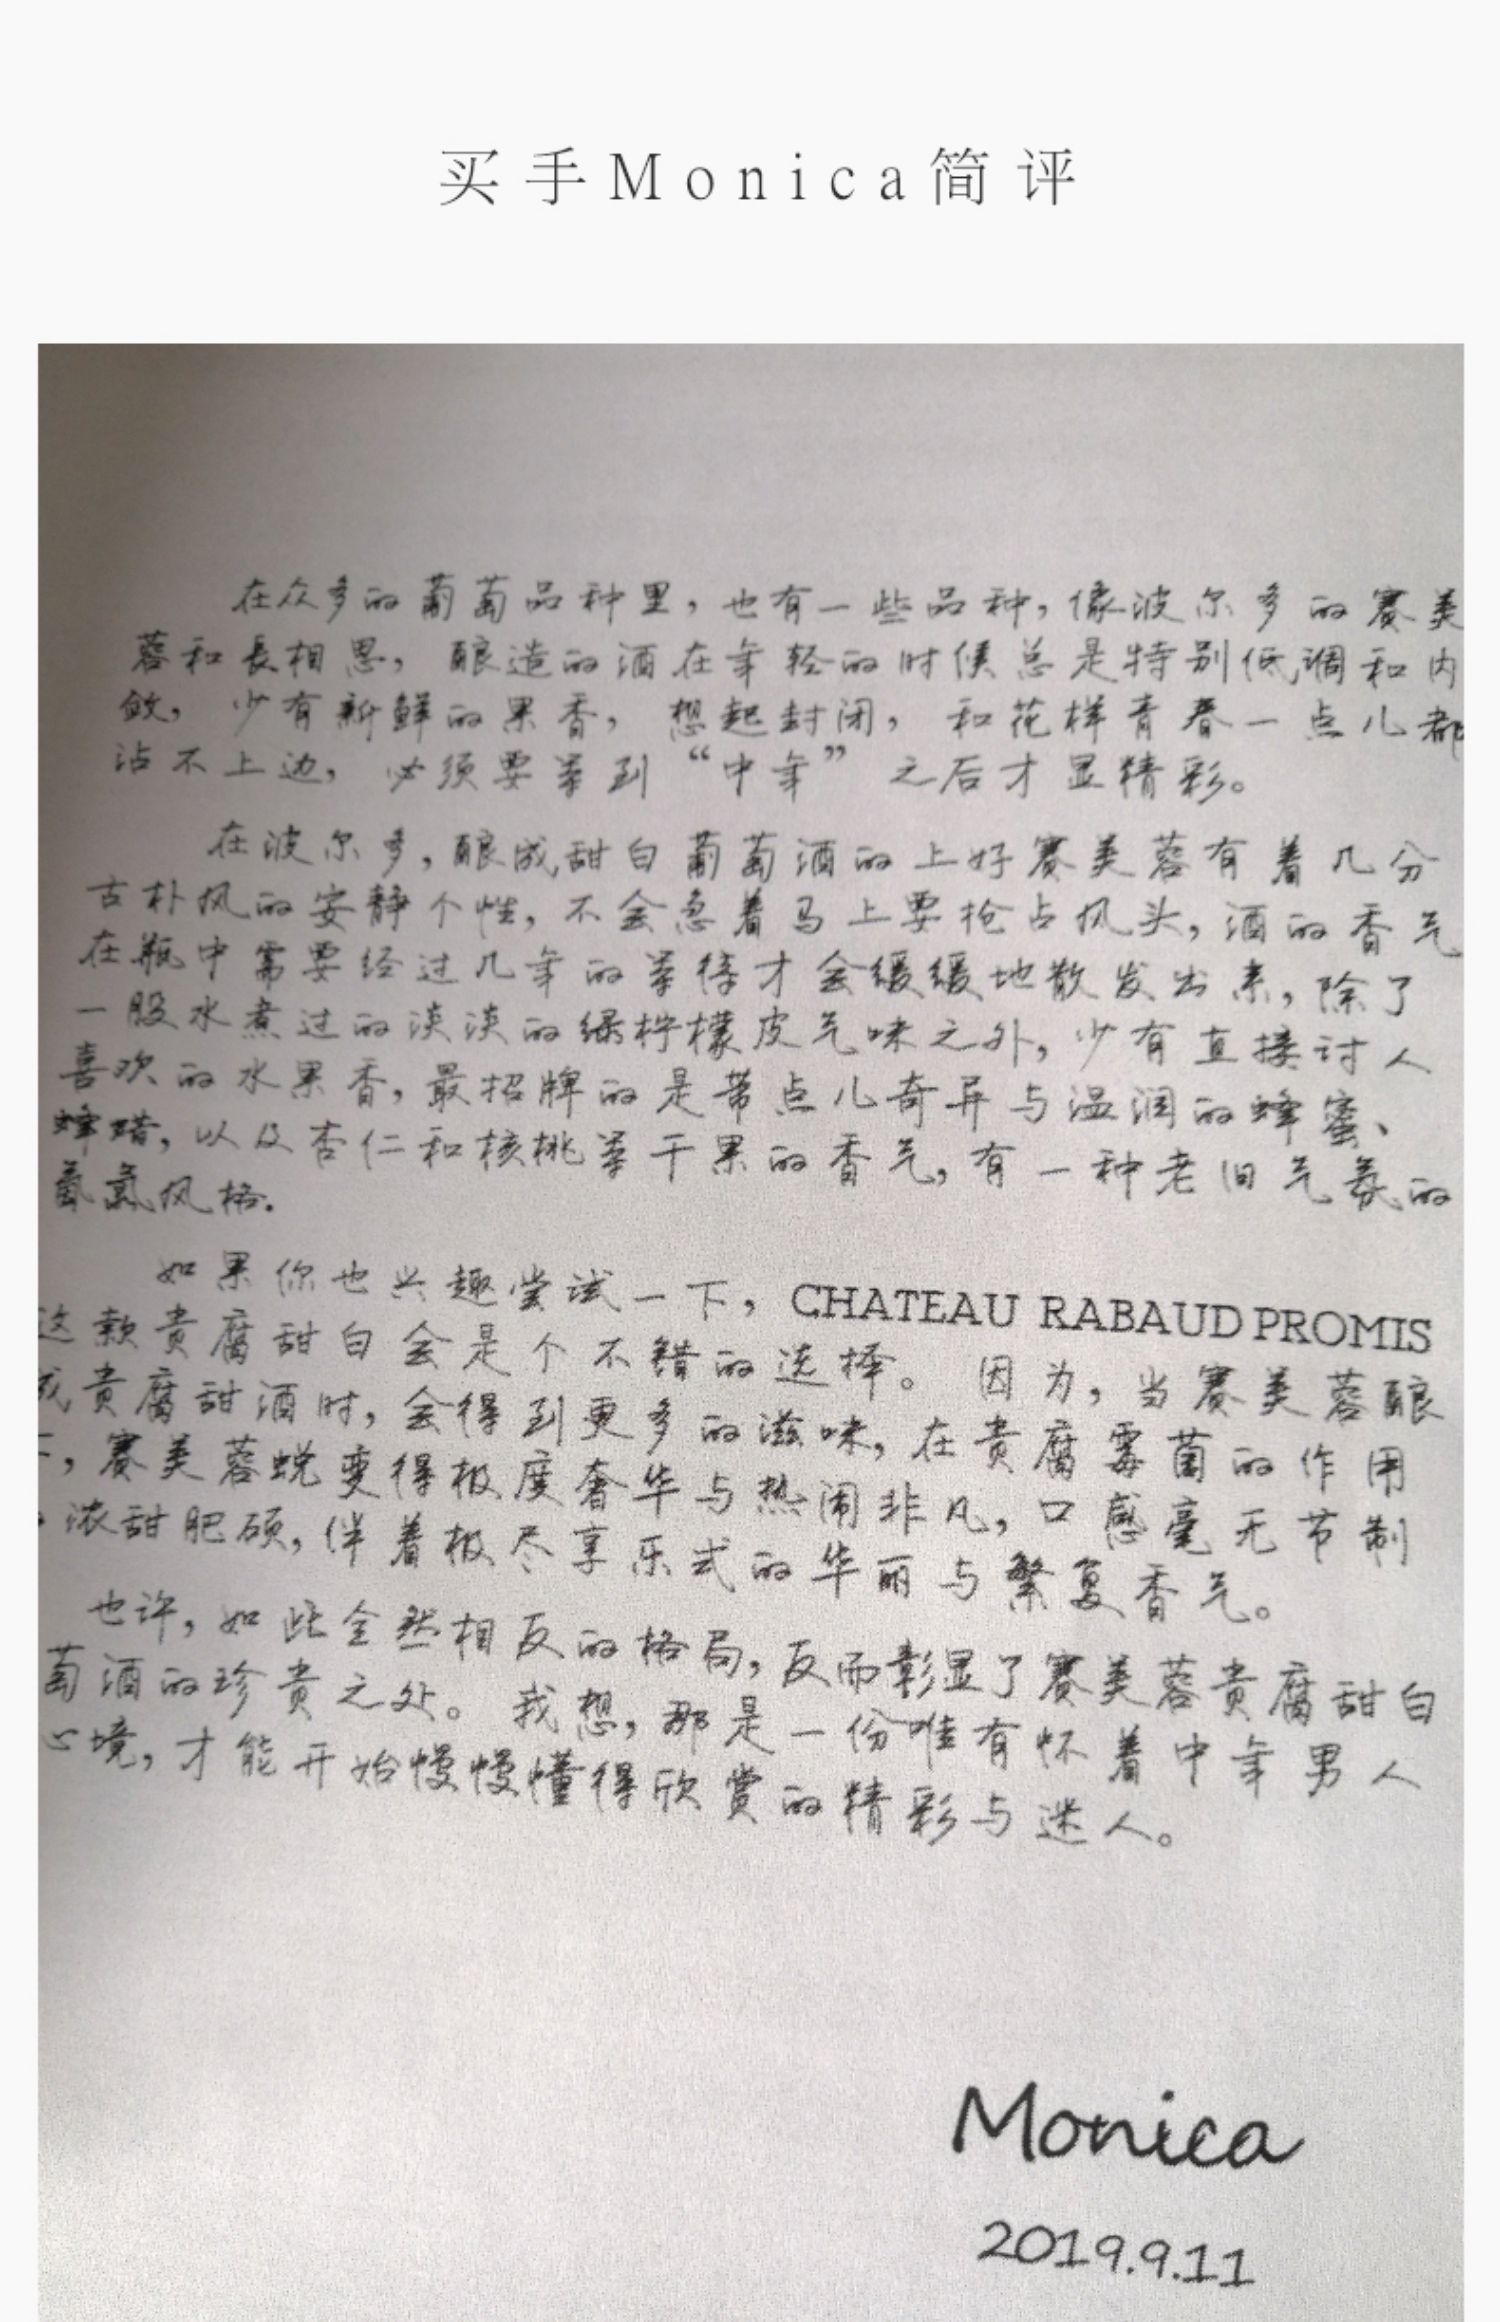 买手Monica简评
在众多的葡萄品种里，也有一些品种，像波尔多的赛美
蓉和長相思，酿造的酒在年轻的时候总是特别低调和内
敛，少有新鲜的果香，想起封闭，和花样青春一点儿都
沾不上边，必须要等到“中年”之后才显精彩。
在波尔多，酿成甜白葡萄酒的上好赛美蓉有着几分
古朴风的安静个性，不会急着马上要抢占风头，酒的香气
在瓶中需要经过几年的等待才会缓缓地散发出来，除了
一股水煮过的淡淡的绿柠檬皮气味之外，少有直接讨人
喜欢的水果香，最招牌的是带点儿奇异与温润的蜂蜜、
蜂蜡，以及杏仁和核桃等干果的香气，有一种老旧气氛的
氤氲风格.
如果你也兴趣尝试一下，CHATEAU RABAUD PROMIS
这款贵腐甜白会是个不错的选择。因为，当赛美蓉酿
成贵腐甜酒时，会得到更多的滋味，在贵腐霉菌的作用
，赛美蓉蜕变得极度奢华与热闹非凡，口感毫无节制
浓甜肥硕，伴着极尽享乐式的华丽与繁复香气。
也许，如此全然相反的格局，反而彰显了赛美蓉贵腐甜白
萄酒的珍贵之处。我想，那是一份唯有怀着中年男人
心境，才能开始慢慢懂得欣赏的精彩与迷人。
Monica
2019.9.11